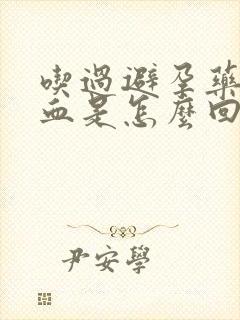 喫過避孕藥
血是怎麼回
尹安學